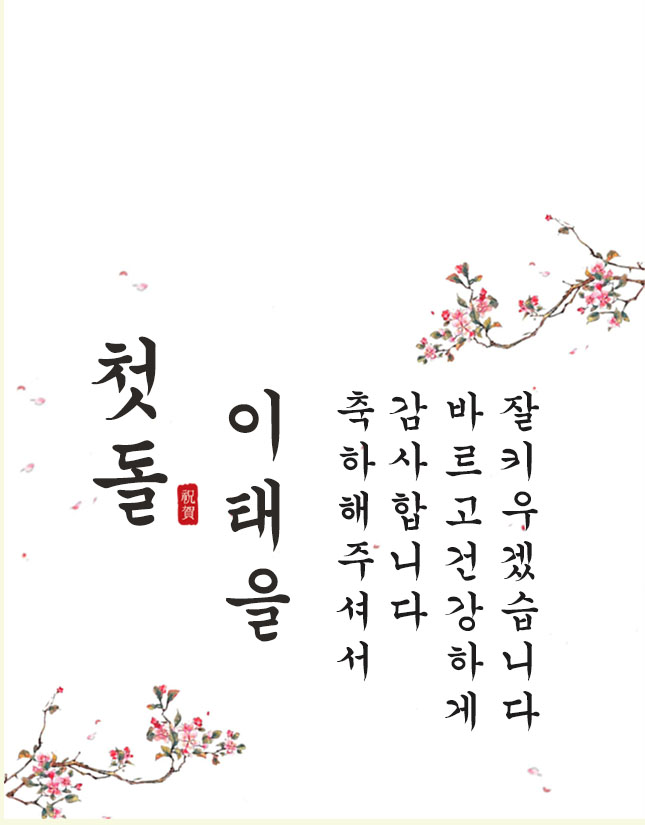 첫돌
祝賀
이태을
축하해주셔서
감사합니다
바르고건강하게
잘키우겠습니다